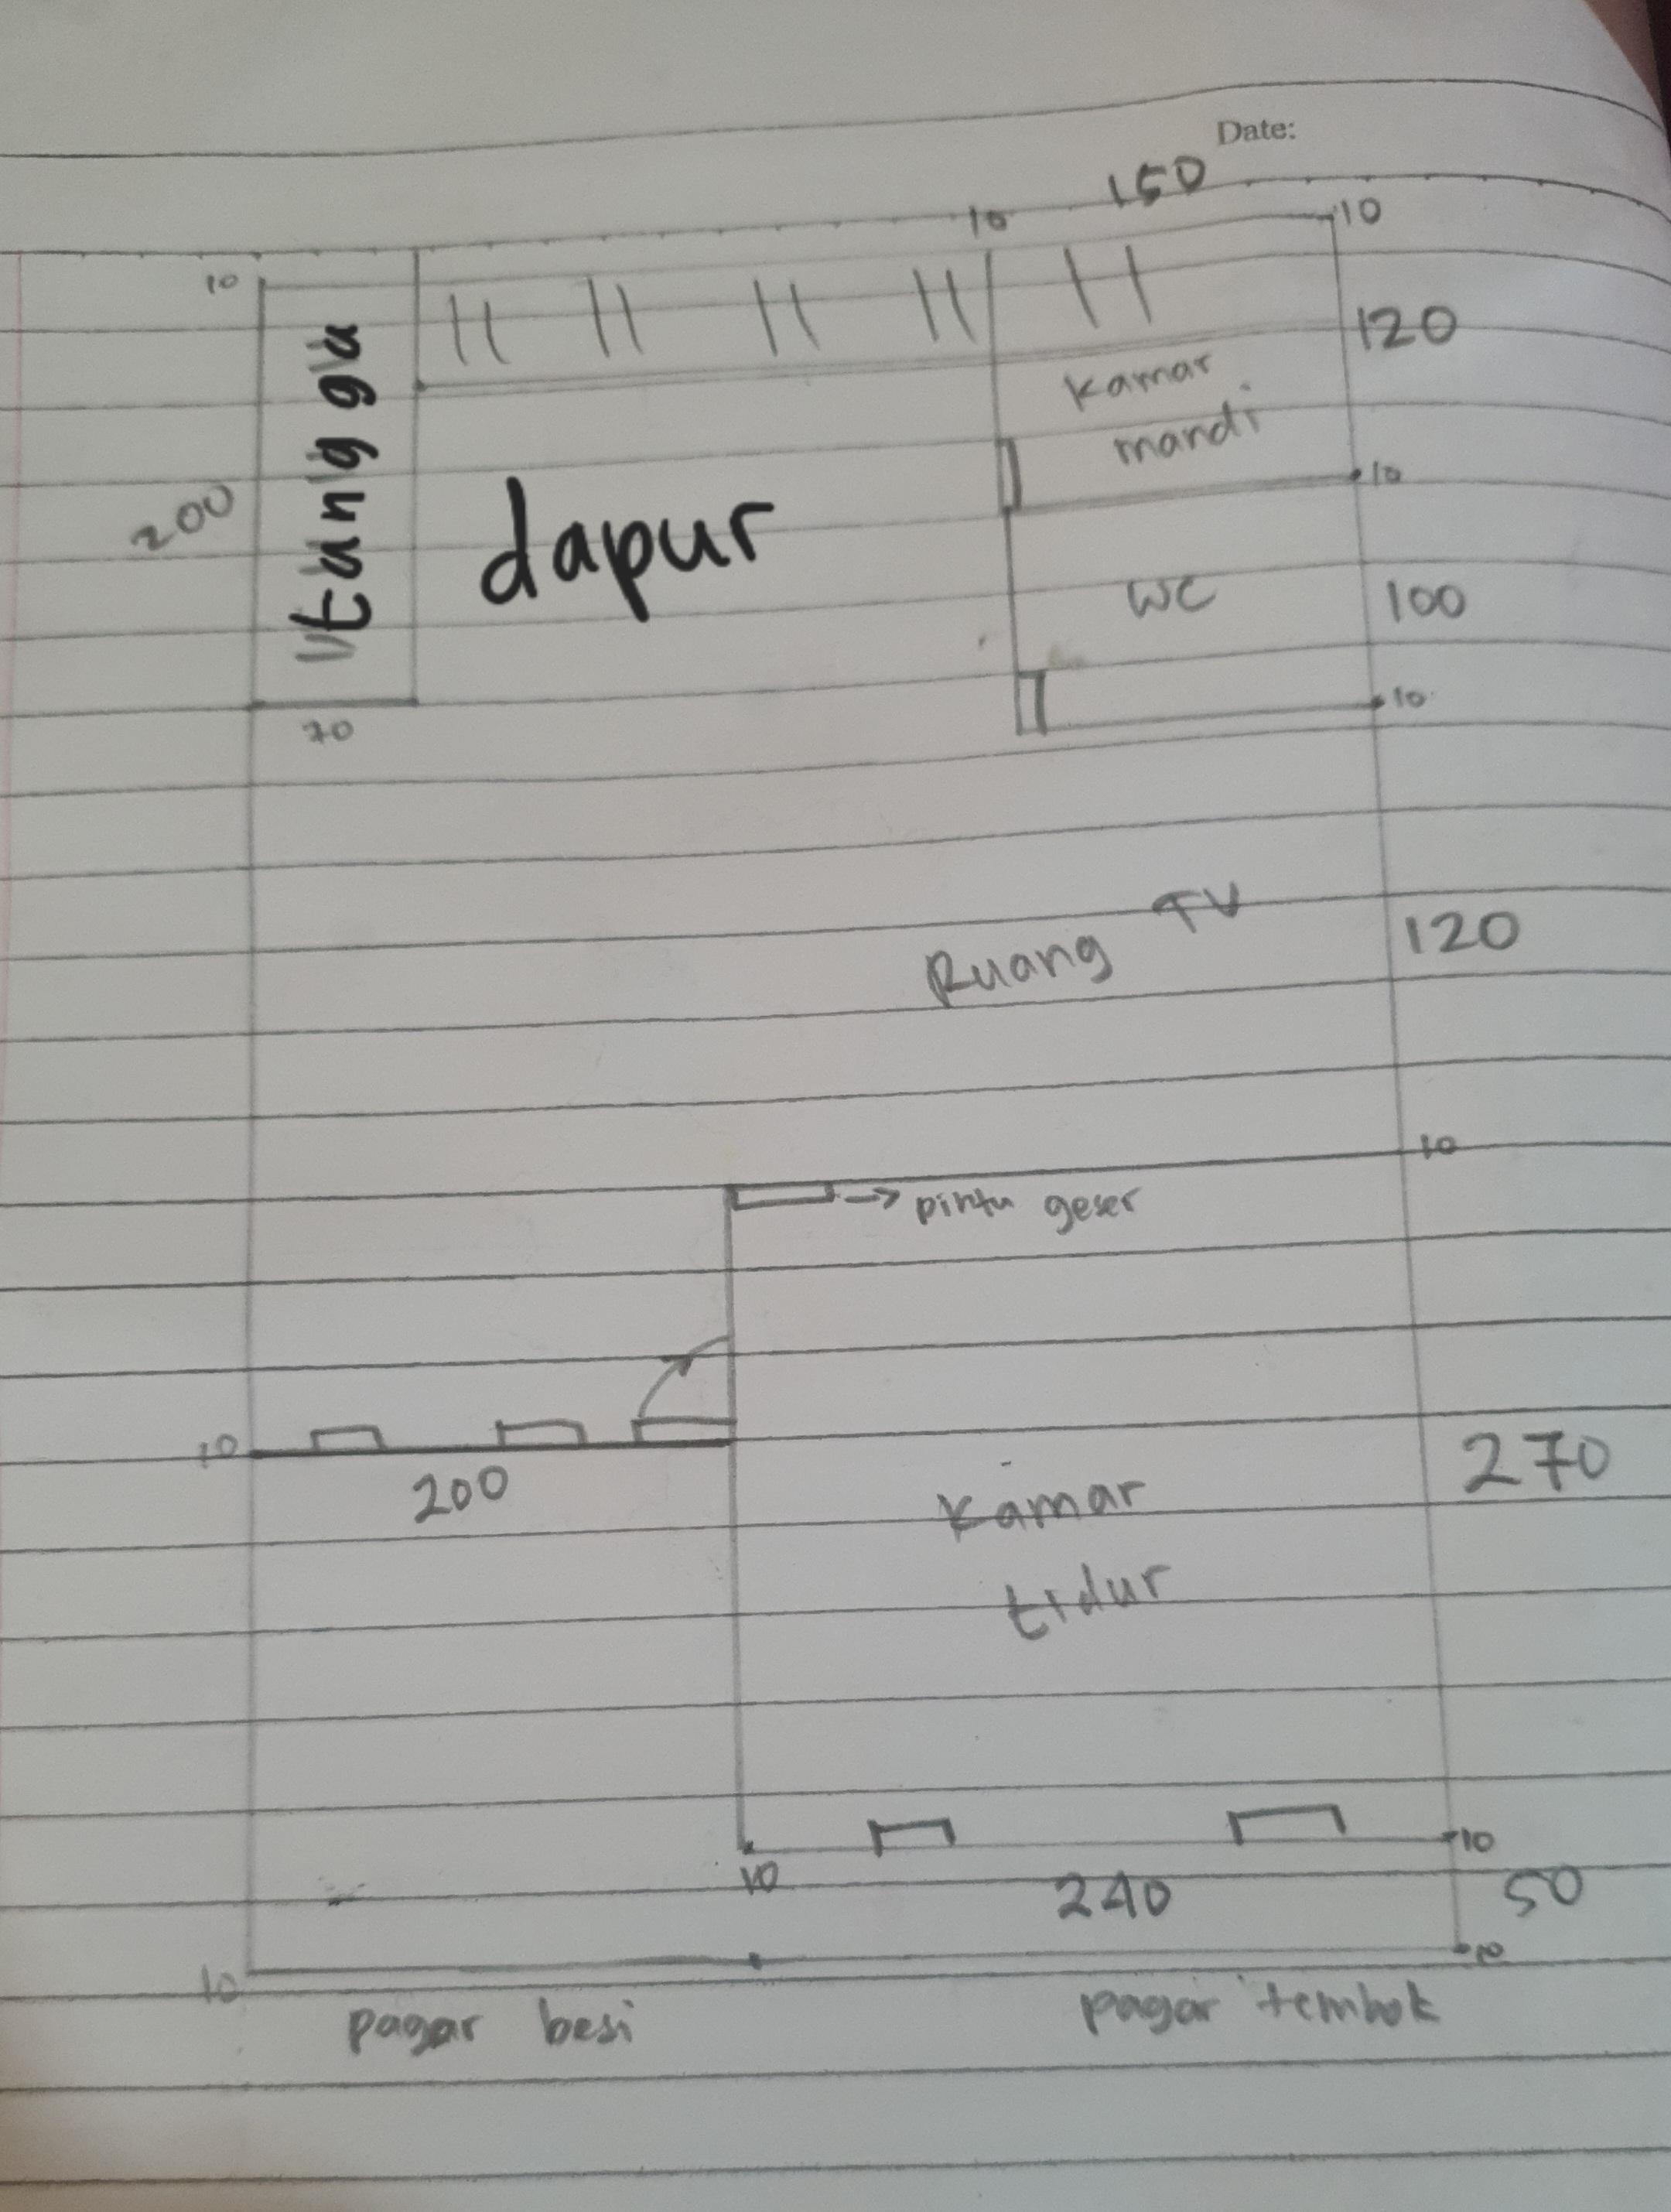 Date:
150
10
10
10
tangga
120
kamar
mandi
10
200
dapur
WC
100
10
70
Ruang TV
120
10
pintu geser
10
200
270
kamar
tidur
10
10
240
50
10
10
pagar besi
pagar tembok